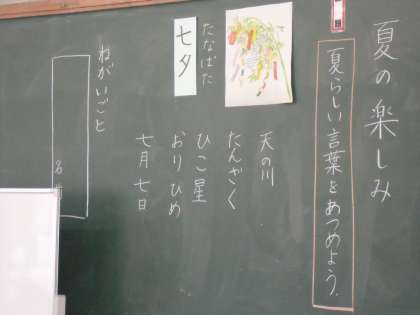 夏の楽しみ
夏らしい言葉をあつめよう。
七夕
たなばた
天の川
たんざく
ひこ星
おりひめ
七月七日
ねがいごと
名